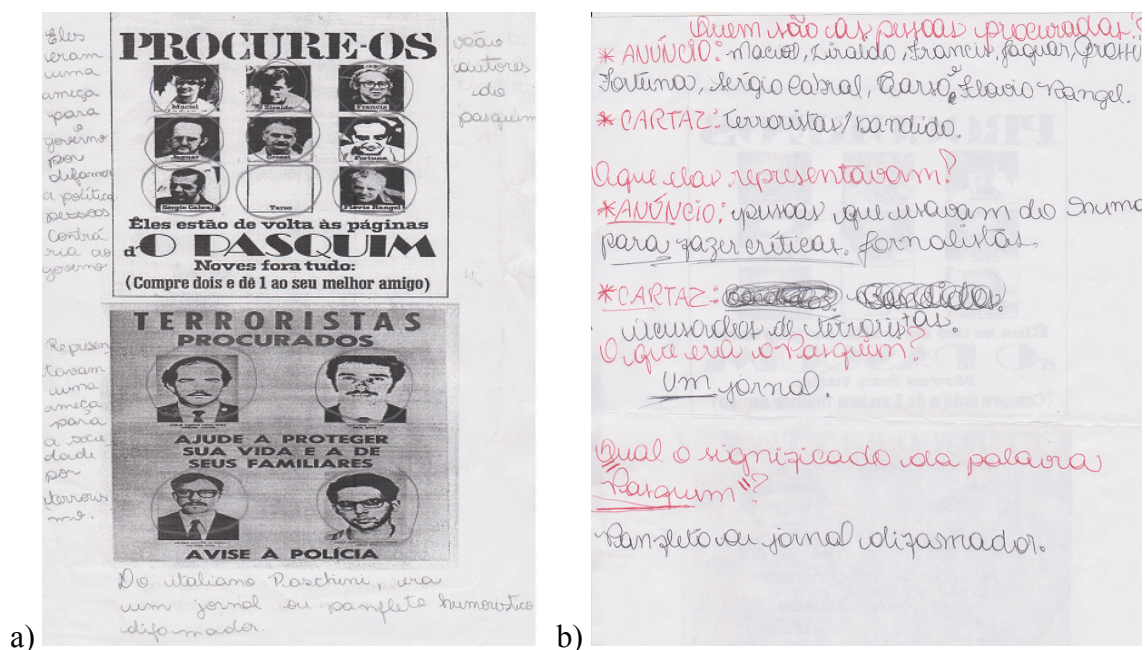 Eles
eram
uma
ameça
para
o
governo
por
difamar
a política
pessoas
contrá
ria ao
governo
PROCURE-OS
são
autores
do
pasquim
Maciel
Ziraldo
Francis
Jaguar
Grossi
Fortuna
Sérgio Cabral
Tarso
Flávio Rangel
Êles estão de volta às páginas
d'O PASQUIM
Noves fora tudo:
(Compre dois e dê 1 ao seu melhor amigo)
Represen
tavam
uma
ameça
para
a socie
dade
por
terroris
mo.
TERRORISTAS
PROCURADOS
AJUDE A PROTEGER
SUA VIDA E A DE
SEUS FAMILIARES
AVISE À POLÍCIA
Do italiano Paschini, era
um jornal ou panfleto humorístico
difamador.
a)
Quem são as pessoas procuradas?
* ANÚNCIO: Maciel, Ziraldo, Francis, Jaguar, Grossi
Fortuna, Sérgio Cabral, Tarso e Flavio Rangel.
* CARTAZ: Terroristas/bandido.
O que elas representavam?
* ANÚNCIO: pessoas que usavam do humo
para fazer críticas. Jornalistas.
* CARTAZ: Bandidos.
acusados de terroristas.
O que era o Pasquim?
um jornal.
Qual o significado da palavra
"Pasquim"?
Panfleto ou jornal difamador.
b)